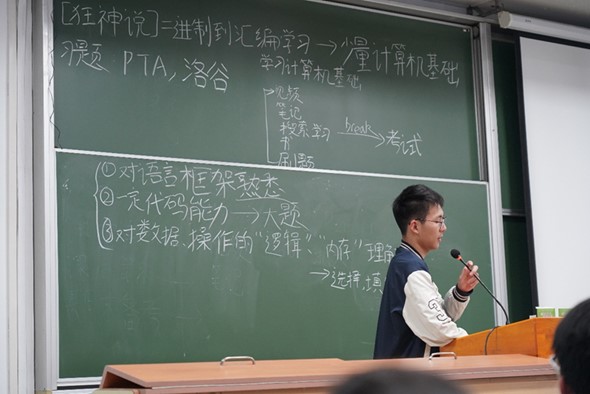 [狂神说]二进制到汇编学习→少量计算机基础
习题 PTA,洛谷
学习计算机基础
视频
笔记
搜索学习 break→考试
书
刷题
①对语言框架熟悉
②一定代码能力→大题
③对数据、操作的“逻辑”、“内存”理解
→选择、填